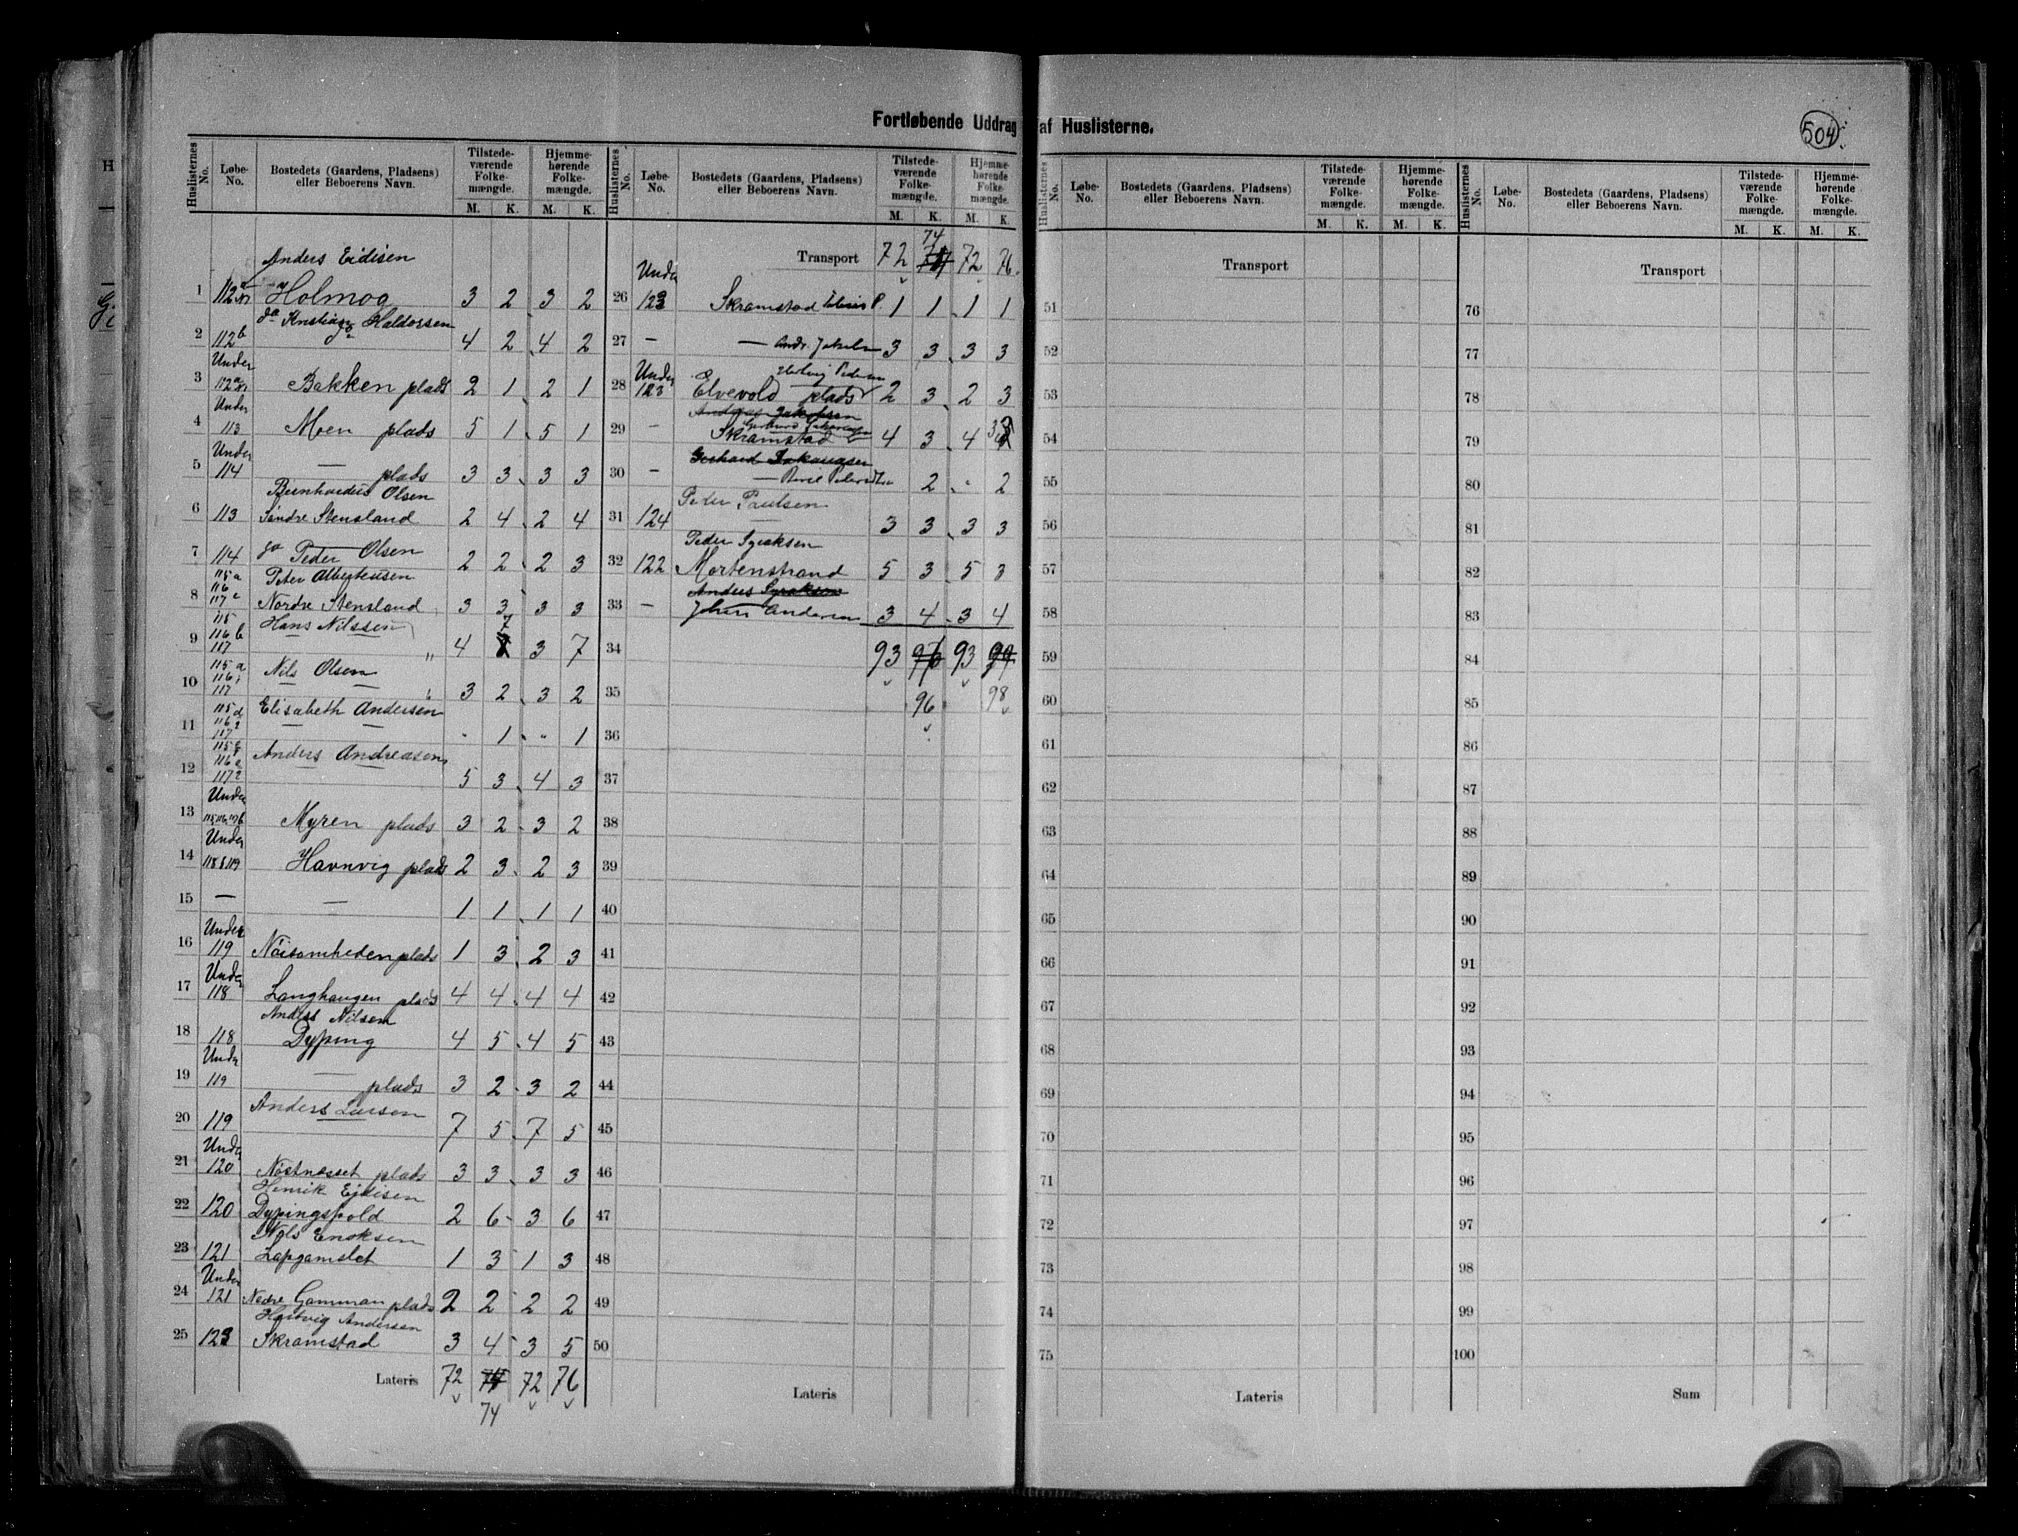 Fortløbende Uddrag af Huslisterne.
504
Huslisternes No. Løbe-No. Bostedets (Gaardens, Pladsens) eller Beboerens Navn. Tilstedeværende Folkemængde. M. K. Hjemmehørende Folkemængde. M. K.
Anders Eidisen
1 Holmog 3 2 3 2
Haldorsen
2 112b 4 2 4 2
Under
3 Bakken plads 2 1 2 1
Under
4 113 Moen plads 5 1 5 1
Under
5 114 — plads 3 3 3 3
Bernhardus Olsen
6 113 Søndre Stensland 2 4 2 4
7 114 Peder Olsen 2 2 2 3
115a Peter Alberteusen
116
8 117c Nordre Stensland 3 3 3 3
115 Hans Nilssen 7
9 116b 117 " 4 3 7
115a Nils Olsen
10 117 — 3 2 3 2
115d Elisabeth Andersen
11 117 — " 1 " 1
Anders Andreasen
12 5 3 4 3
Under
13 Myren plads 3 2 3 2
Under
14 118 & 119 Havnvig plads 2 3 2 3
15 — — 1 1 1 1
Under
16 119 Nøisomheden plads 1 3 2 3
Under
17 118 Langhaugen plads 4 4 4 4
Anders Nilsen
18 118 Dyping 4 5 4 5
Under
19 119 — plads 3 2 3 2
Anders Larsen
20 119 7 5 7 5
Under
21 120 Nøstnesset plads 3 3 3 3
Henrik Ejdisen
22 120 Dypingspold 2 6 3 6
Nils Enoksen
23 121 Lapgamslet 1 3 1 3
Under
24 121 Nedre Gamman plads 2 2 2 2
Hartvig Andersen
25 123 Skramstad 3 4 3 5
Lateris 72 72 76
74
Huslisternes No. Løbe-No. Bostedets (Gaardens, Pladsens) eller Beboerens Navn. Tilstedeværende Folkemængde. M. K. Hjemmehørende Folkemængde. M. K.
74
Transport 72 72 76
Under
26 123 Skramstad P. 1 1 1 1
27 — — Andr. 3 3 3 3
Under Pedersen
28 123 Elvevold plads 2 3 2 3
Jakobsen
29 — Skramstad 4 3 4 3
Gerhard
30 — — 2 " 2
Peder Paulsen
31 124 — 3 3 3 3
Peder Syraksen
32 122 Mortenstrand 5 3 5 3
Anders Syraksen
33 — Johan Andersen 3 4 3 4
34 93 93
35 96 98
36
37
38
39
40
41
42
43
44
45
46
47
48
49
50
Lateris
Huslisternes No. Løbe-No. Bostedets (Gaardens, Pladsens) eller Beboerens Navn. Tilstedeværende Folkemængde. M. K. Hjemmehørende Folkemængde. M. K.
Transport
51
52
53
54
55
56
57
58
59
60
61
62
63
64
65
66
67
68
69
70
71
72
73
74
75
Lateris
Huslisternes No. Løbe-No. Bostedets (Gaardens, Pladsens) eller Beboerens Navn. Tilstedeværende Folkemængde. M. K. Hjemmehørende Folkemængde. M. K.
Transport
76
77
78
79
80
81
82
83
84
85
86
87
88
89
90
91
92
93
94
95
96
97
98
99
100
Sum